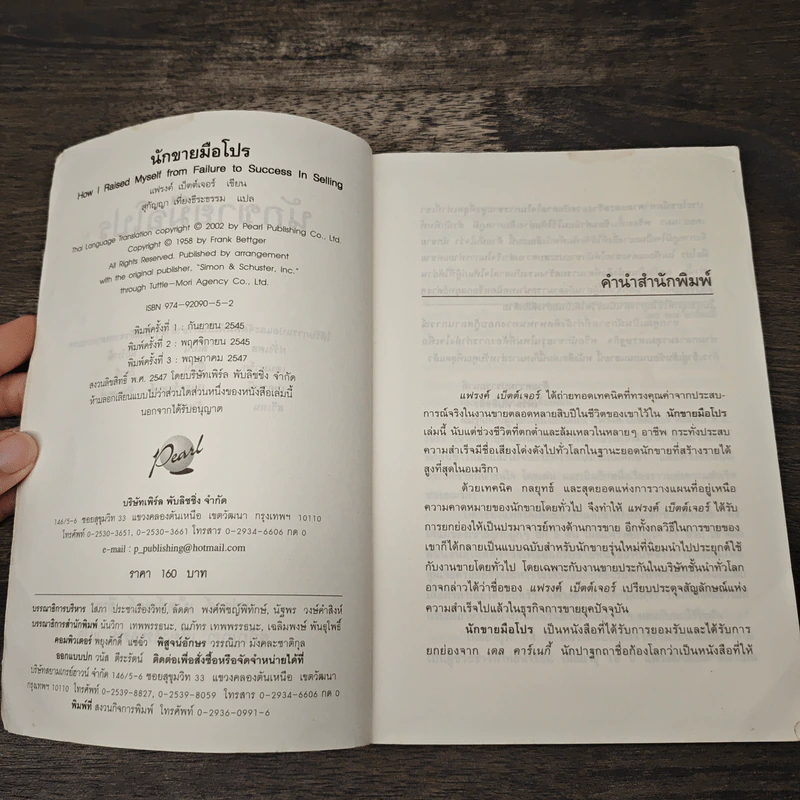 นักขายมือโปร
How I Raised Myself from Failure to Success In Selling
แฟรงค์ เบ็ตต์เจอร์ เขียน
สุกัญญา เที่ยงธีระธรรม แปล
Thai Language Translation copyright © 2002 by Pearl Publishing Co., Ltd.
Copyright © 1958 by Frank Bettger
All Rights Reserved. Published by arrangement
with the original publisher, "Simon & Schuster, Inc."
through Tuttle-Mori Agency Co., Ltd.
ISBN 974-92090-5-2
พิมพ์ครั้งที่ 1 : กันยายน 2545
พิมพ์ครั้งที่ 2 : พฤศจิกายน 2545
พิมพ์ครั้งที่ 3 : พฤษภาคม 2547
สงวนลิขสิทธิ์ พ.ศ. 2547 โดยบริษัทเพิร์ล พับลิชชิ่ง จำกัด
ห้ามลอกเลียนแบบไม่ว่าส่วนใดส่วนหนึ่งของหนังสือเล่มนี้
นอกจากได้รับอนุญาต
Pearl
บริษัทเพิร์ล พับลิชชิ่ง จำกัด
146/5-6 ซอยสุขุมวิท 33 แขวงคลองตันเหนือ เขตวัฒนา กรุงเทพฯ 10110
โทรศัพท์ 0-2530-3651, 0-2530-3661 โทรสาร 0-2934-6606 กด 0
e-mail : p_publishing@hotmail.com
ราคา 160 บาท
บรรณาธิการบริหาร โสภา ประชาเรืองวิทย์, ลัดดา พงศ์พิชญ์พิทักษ์, นัฐพร วงษ์คำสิงห์
บรรณาธิการสำนักพิมพ์ นันวิภา เทพพรรธนะ, ณภัทร เทพพรรธนะ, เฉลิมพงษ์ พันธุโพธิ์
คอมพิวเตอร์ พยุงศักดิ์ แซ่จั่ว พิสูจน์อักษร วรรณิภา มังคละชาติกุล
ออกแบบปก วนัส ตีระรัตน์ ติดต่อเพื่อสั่งซื้อหรือจัดจำหน่ายได้ที่
บริษัทสยามเกรย์ฮาวน์ จำกัด 146/5-6 ซอยสุขุมวิท 33 แขวงคลองตันเหนือ เขตวัฒนา
กรุงเทพฯ 10110 โทรศัพท์ 0-2539-8827, 0-2539-8059 โทรสาร 0-2934-6606 กด 0
พิมพ์ที่ สงวนกิจการพิมพ์ โทรศัพท์ 0-2936-0991-6
คำนำสำนักพิมพ์
แฟรงค์ เบ็ตต์เจอร์ ได้ถ่ายทอดเทคนิคที่ทรงคุณค่าจากประสบ-
การณ์จริงในงานขายตลอดหลายสิบปีในชีวิตของเขาไว้ใน นักขายมือโปร
เล่มนี้ นับแต่ช่วงชีวิตที่ตกต่ำและล้มเหลวในหลายๆ อาชีพ กระทั่งประสบ
ความสำเร็จมีชื่อเสียงโด่งดังไปทั่วโลกในฐานะยอดนักขายที่สร้างรายได้
สูงที่สุดในอเมริกา
ด้วยเทคนิค กลยุทธ์ และสุดยอดแห่งการวางแผนที่อยู่เหนือ
ความคาดหมายของนักขายโดยทั่วไป จึงทำให้ แฟรงค์ เบ็ตต์เจอร์ ได้รับ
การยกย่องให้เป็นปรมาจารย์ทางด้านการขาย อีกทั้งกลวิธีในการขายของ
เขาก็ได้กลายเป็นแบบฉบับสำหรับนักขายรุ่นใหม่ที่นิยมนำไปประยุกต์ใช้
กับงานขายโดยทั่วไป โดยเฉพาะกับงานขายประกันในบริษัทชั้นนำทั่วโลก
อาจกล่าวได้ว่าชื่อของ แฟรงค์ เบ็ตต์เจอร์ เปรียบประดุจสัญลักษณ์แห่ง
ความสำเร็จไปแล้วในธุรกิจการขายยุคปัจจุบัน
นักขายมือโปร เป็นหนังสือที่ได้รับการยอมรับและได้รับการ
ยกย่องจาก เดล คาร์เนกี้ นักปาฐกถาชื่อก้องโลกว่าเป็นหนังสือที่ให้